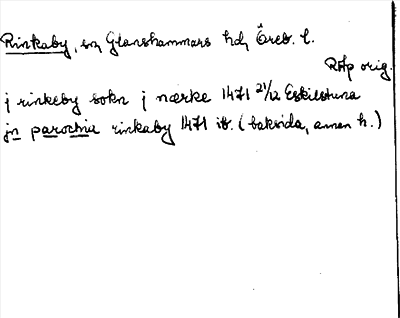 Rinkaby, sn, Glanshammars hd, Öreb. l.
RAp orig.
j rinkeby sokn j nærke 1471 21/12 Eskilstuna
jn parochia rinkaby 1471 ib. (baksida, annan h.)